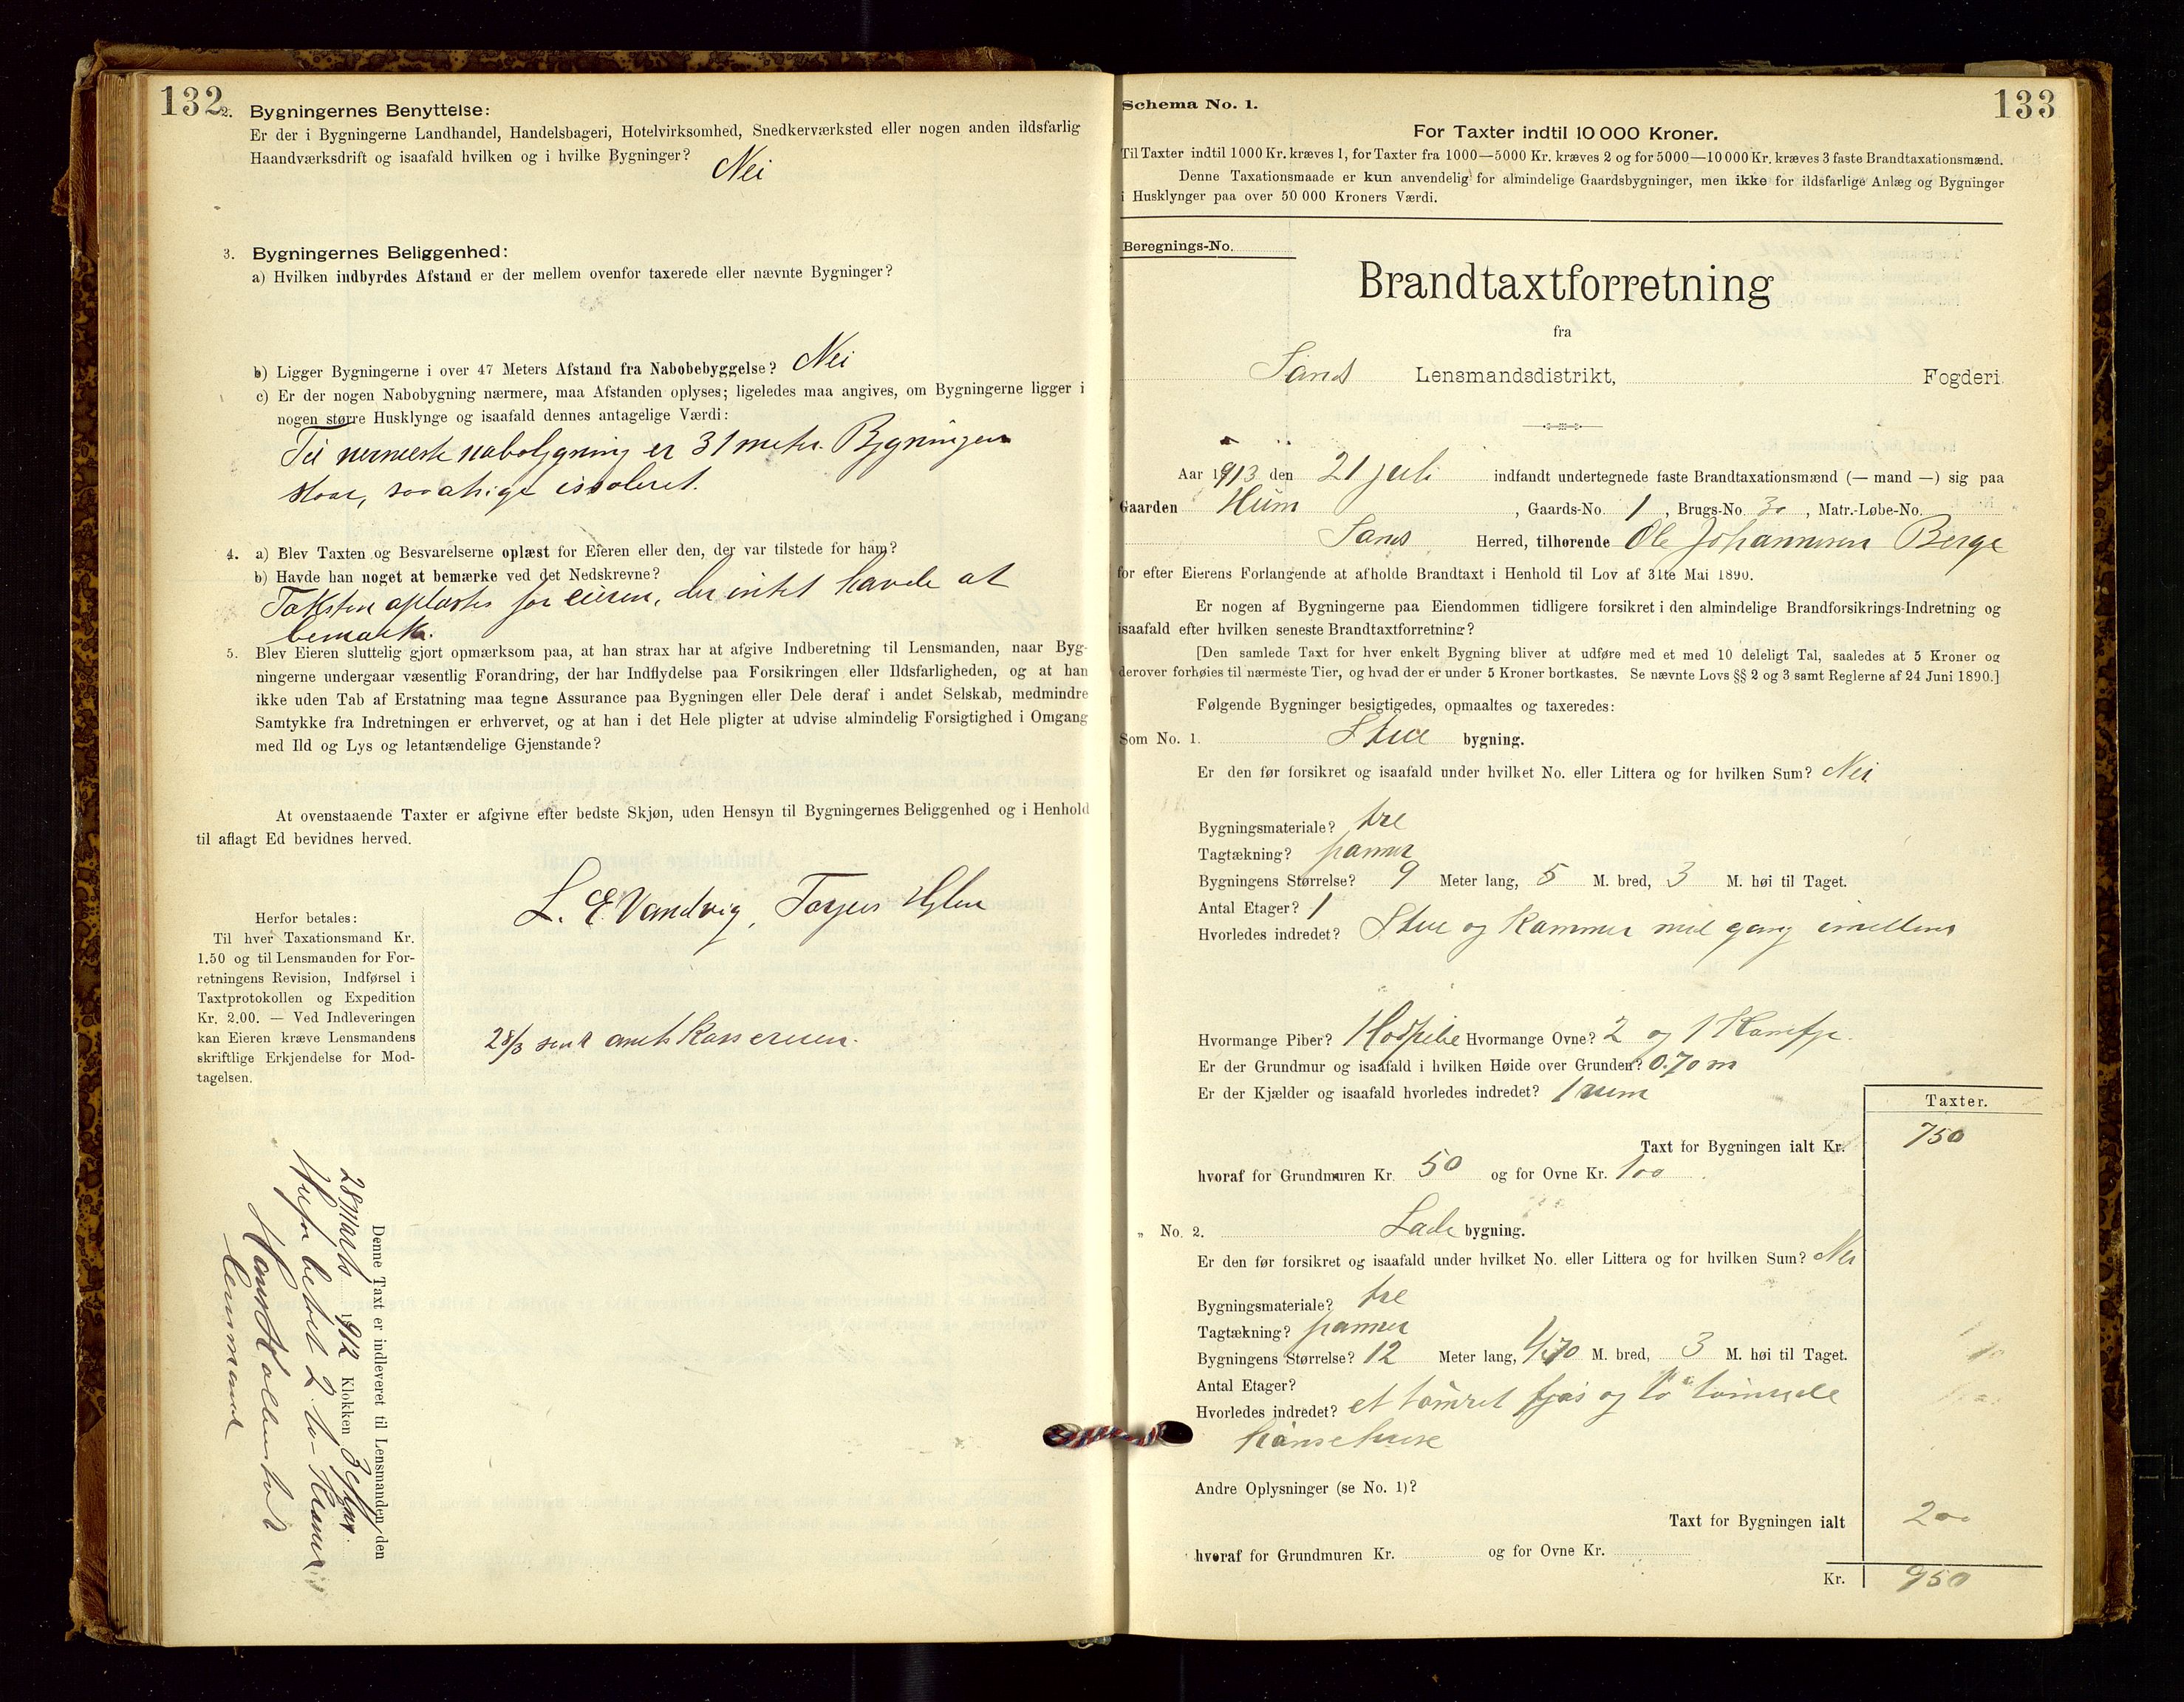 132
2. Bygningernes Benyttelse:
Er der i Bygningerne Landhandel, Handelsbageri, Hotelvirksomhed, Snedkerværksted eller nogen anden ildsfarlig
Haandværksdrift og isaafald hvilken og i hvilke Bygninger? Nei
3. Bygningernes Beliggenhed:
a) Hvilken indbyrdes Afstand er der mellem ovenfor taxerede eller nævnte Bygninger?
b) Ligger Bygningerne i over 47 Meters Afstand fra Nabobebyggelse? Nei
c) Er der nogen Nabobygning nærmere, maa Afstanden oplyses; ligeledes maa angives, om Bygningerne ligger i
nogen større Husklynge og isaafald dennes antagelige Værdi:
Til nermeste nabobygning er 31 meter. Bygningen
staar, saavidt isoleret.
4. a) Blev Taxten og Besvarelserne oplæst for Eieren eller den, der var tilstede for ham?
b) Havde han noget at bemærke ved det Nedskrevne?
Taksten oplæstes for eieren, der intet havde at
bemærke.
5. Blev Eieren sluttelig gjort opmærksom paa, at han strax har at afgive Indberetning til Lensmanden, naar Byg-
ningerne undergaar væsentlig Forandring, der har Indflydelse paa Forsikringen eller Ildsfarligheden, og at han
ikke uden Tab af Erstatning maa tegne Assurance paa Bygningen eller Dele deraf i andet Selskab, medmindre
Samtykke fra Indretningen er erhvervet, og at han i det Hele pligter at udvise almindelig Forsigtighed i Omgang
med Ild og Lys og letantændelige Gjenstande?
At ovenstaaende Taxter er afgivne efter bedste Skjøn, uden Hensyn til Bygningernes Beliggenhed og i Henhold
til aflagt Ed bevidnes herved.
L. E. Vandvig, Torger Hylen
Herfor betales:
Til hver Taxationsmand Kr.
1.50 og til Lensmanden for For-
retningens Revision, Indførsel i
Taxtprotokollen og Expedition
Kr. 2.00. — Ved Indleveringen
kan Eieren kræve Lensmandens
skriftlige Erkjendelse for Mod-
tagelsen.
28/3 sendt amtskassereren.
Denne Taxt er indleveret til Lensmanden den
28 Marts 1912 Klokken 3 eftm.
Herfor betalt 2 to Kroner
Lensmand
133
Schema No. 1.
For Taxter indtil 10 000 Kroner.
Til Taxter indtil 1000 Kr. kræves 1, for Taxter fra 1000—5000 Kr. kræves 2 og for 5000—10 000 Kr. kræves 3 faste Brandtaxationsmænd.
Denne Taxationsmaade er kun anvendelig for almindelige Gaardsbygninger, men ikke for ildsfarlige Anlæg og Bygninger
i Husklynger paa over 50 000 Kroners Værdi.
Beregnings-No.
Brandtaxtforretning
fra
Sands Lensmandsdistrikt, Fogderi.
Aar 1913 den 21 juli indfandt undertegnede faste Brandtaxationsmænd (— mand —) sig paa
Gaarden Hüm , Gaards-No. 1 , Brugs-No. 30 , Matr.-Løbe-No.
Sands Herred, tilhørende Ole Johannesen Berge
for efter Eierens Forlangende at afholde Brandtaxt i Henhold til Lov af 31te Mai 1890.
Er nogen af Bygningerne paa Eiendommen tidligere forsikret i den almindelige Brandforsikrings-Indretning og
isaafald efter hvilken seneste Brandtaxtforretning?
[Den samlede Taxt for hver enkelt Bygning bliver at udføre med et med 10 deleligt Tal, saaledes at 5 Kroner og
derover forhøies til nærmeste Tier, og hvad der er under 5 Kroner bortkastes. Se nævnte Lovs §§ 2 og 3 samt Reglerne af 24 Juni 1890.]
Følgende Bygninger besigtigedes, opmaaltes og taxeredes:
Som No. 1. Stue bygning.
Er den før forsikret og isaafald under hvilket No. eller Littera og for hvilken Sum? Nei
Bygningsmateriale? træ
Tagtækning? panner
Bygningens Størrelse? 9 Meter lang, 5 M. bred, 3 M. høi til Taget.
Antal Etager? 1
Hvorledes indredet? Stue og Kammer med gang imellem
Hvormange Piber? 1 Hvormange Ovne? 2 og 1
Er der Grundmur og isaafald i hvilken Høide over Grunden? 0.70 m
Er der Kjælder og isaafald hvorledes indredet? 1 rum
Taxter.
Taxt for Bygningen ialt Kr. 750
hvoraf for Grundmuren Kr. 50 og for Ovne Kr. 100
„ No. 2. Lade bygning.
Er den før forsikret og isaafald under hvilket No. eller Littera og for hvilken Sum? Nei
Bygningsmateriale? træ
Tagtækning? panner
Bygningens Størrelse? 12 Meter lang, 4,70 M. bred, 3 M. høi til Taget.
Antal Etager?
Hvorledes indredet? et tømret fjøs og to
hønsehuse
Andre Oplysninger (se No. 1)?
Taxt for Bygningen ialt 200
hvoraf for Grundmuren Kr. og for Ovne Kr.
Kr. 950